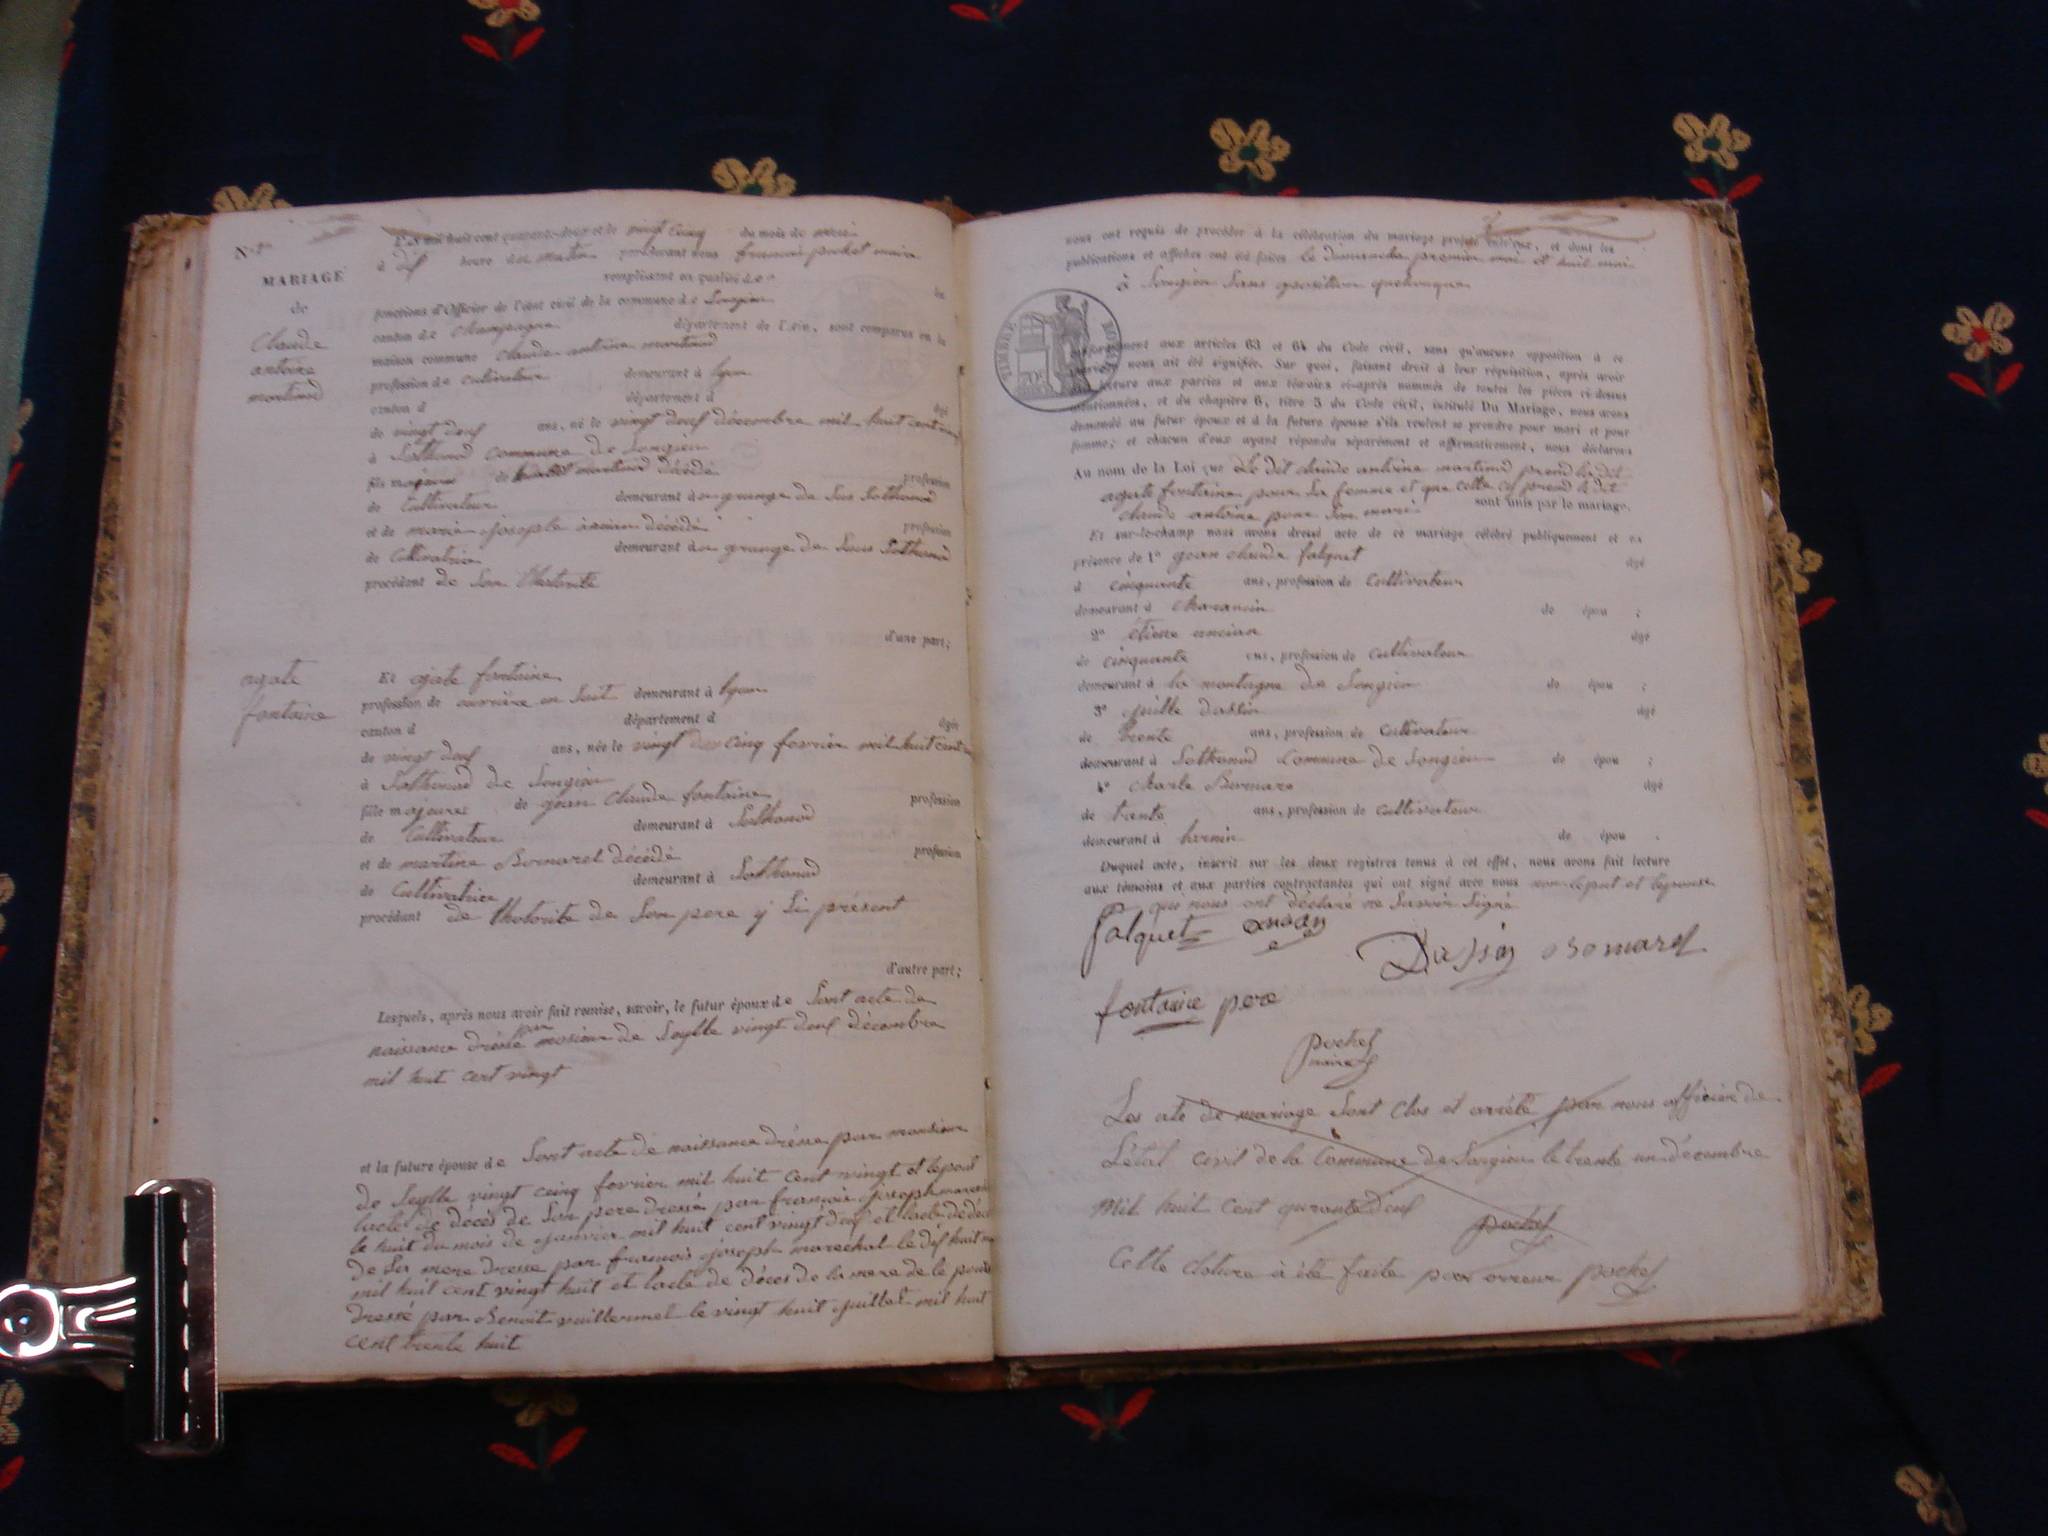 N.
MARIAGE
de
Claude
antoine
martinod
L'an mil huit cent quarante-deux et le vingt cinq du mois de mai
à dix heure du matin pardevant nous françois pochet maire
remplissant en qualité de
fonctions d'Officier de l'état civil de la commune de Songieu
canton de Champagne département de l'Ain, sont comparus en la
maison commune Claude antoine martinod
profession de cultivateur demeurant à lyon
canton d département d âgé
de vingt deux ans, né le vingt deux décembre mil huit cent
à Sothonod commune de Songieu
fils majeur de martinod décédé profession
de Cultivateur demeurant à grange de Sus Sothonod
et de marie josephe ancian décédé profession
de Cultivatrice demeurant à grange de Sous Sothonod
procédant de Son
d'une part;
agate
fontaine
Et agate fontaine
profession de ouvrière en Soit demeurant à lyon
canton d département d âgée
de vingt deux ans, née le vingt cinq fevrier mil huit cent
à Sothonod de Songieu
fille majeure de jean Claude fontaine profession
de Cultivateur demeurant à Sothonod
et de martine Bornarel décédé profession
de Cultivatrice demeurant à Sothonod
procédant de lhotorite de Son pere y Si présent
d'autre part;
Lesquels, après nous avoir fait remise, savoir, le futur époux de Sont acte de
naissance dressé par mosieur de Seylle vingt deux décembre
mil huit cent vingt
et la future épouse de Sont acte de naissance dressé par monsieur
de Seylle vingt cinq fevrier mil huit cent vingt et lepout
lacte de décès de Son pere dressé par françois joseph
le huit du mois de janvier mil huit cent vingt deux et lacte de
de Sa mere dresse par françois joseph marechal le dix huit
mil huit cent vingt huit et lacte de déces de la mere de le
dressé par Benoit vuillermet le vingt huit juillet mil huit
cent trente huit
nous ont requis de procéder à la célébration du mariage projeté entr'eux, et dont les
publications et affiches ont été faites le dimanche premier mai et huit mai
à Songieu Sans oposition quelconque
TIMBRE ROYAL
conformément aux articles 63 et 64 du Code civil, sans qu'aucune opposition à ce
mariage nous ait été signifiée. Sur quoi, faisant droit à leur réquisition, après avoir
fait lecture aux parties et aux témoins ci-après nommés de toutes les pièces ci-dessus
mentionnées, et du chapitre 6, titre 5 du Code civil, intitulé Du Mariage, nous avons
demandé au futur époux et à la future épouse s'ils veulent se prendre pour mari et pour
femme; et chacun d'eux ayant répondu séparément et affirmativement, nous déclarons
Au nom de la Loi que le dit claude antoine martinod prend la dit
agate fontaine pour Sa femme et que cette ci prend le dit
claude antoine pour Son mari sont unis par le mariage.
Et sur-le-champ nous avons dressé acte de ce mariage célébré publiquement et en
présence de 1° jean claude falquet âgé
d cinquante ans, profession de cultivateur
demeurant à charancin de époux ;
2° étiene ancian âgé
de cinquante ans, profession de cultivateur
demeurant à la montagne de Songieu de époux ;
3° dassin âgé
de trente ans, profession de cultivateur
demeurant à Sothonod Commune de Songieu de époux ;
4° charle Bornare âgé
de trente ans, profession de cultivateur
demeurant à de époux .
Duquel acte, inscrit sur les deux registres tenus à cet effet, nous avons fait lecture
aux témoins et aux parties contractantes qui ont signé avec nous non leput et lepouse
que nous ont déclaré ne Savoir Signé
falquet ansian
Dassin bornarel
fontaine pere
pochet
maire
Les ate de mariage Sont Clos et arrété par nous officier de
Létat civil de la Commune de Songieu le trente un décembre
Mil huit Cent quarante deux
pochet
Cette cloture à été faite par erreur pochet